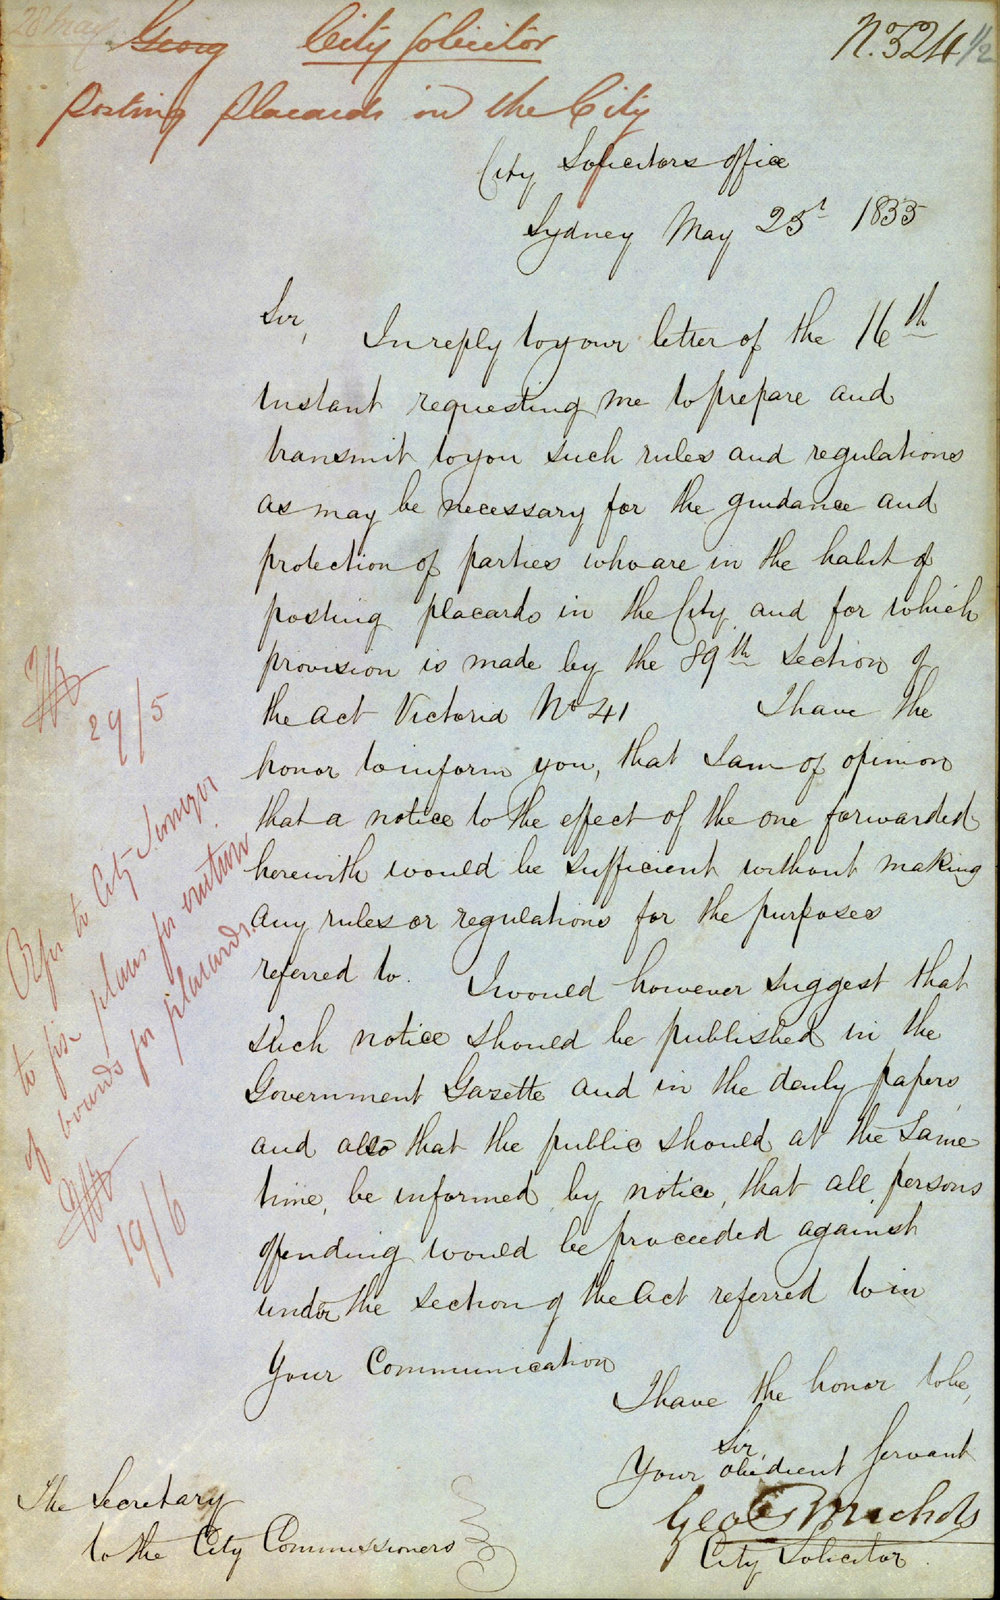 28 May
Georg City Solicitor
No. 524 1/2
Posting Placards in the City
City Solicitors Office
Sydney May 25t 1855
Sir,
In reply to your letter of the 16th
instant requesting me to prepare and
transmit to you such rules and regulations
as may be necessary for the guidance and
protection of parties who are in the habit of
posting placards in the City, and for which
provision is made by the 89th section of
the Act Victoria No 41 I have the
honor to inform you, that I am of opinion
that a notice to the effect of the one forwarded
herewith would be sufficient without making
any rules or regulations for the purposes
referred to. I would however suggest that
such notice should be published in the
Government Gazette and in the daily papers,
and also that the public should at the same
time, be informed by notice, that all persons
offending would be proceeded against
under the section of the Act referred to in
your Communication
I have the honor to be,
Sir,
Your obedient Servant
Geo R Nichols
City Solicitor.
The Secretary
to the City Commissioners
29/5
Refer to City Surveyor
to fix plans for erection
of boards for placards.
19/6